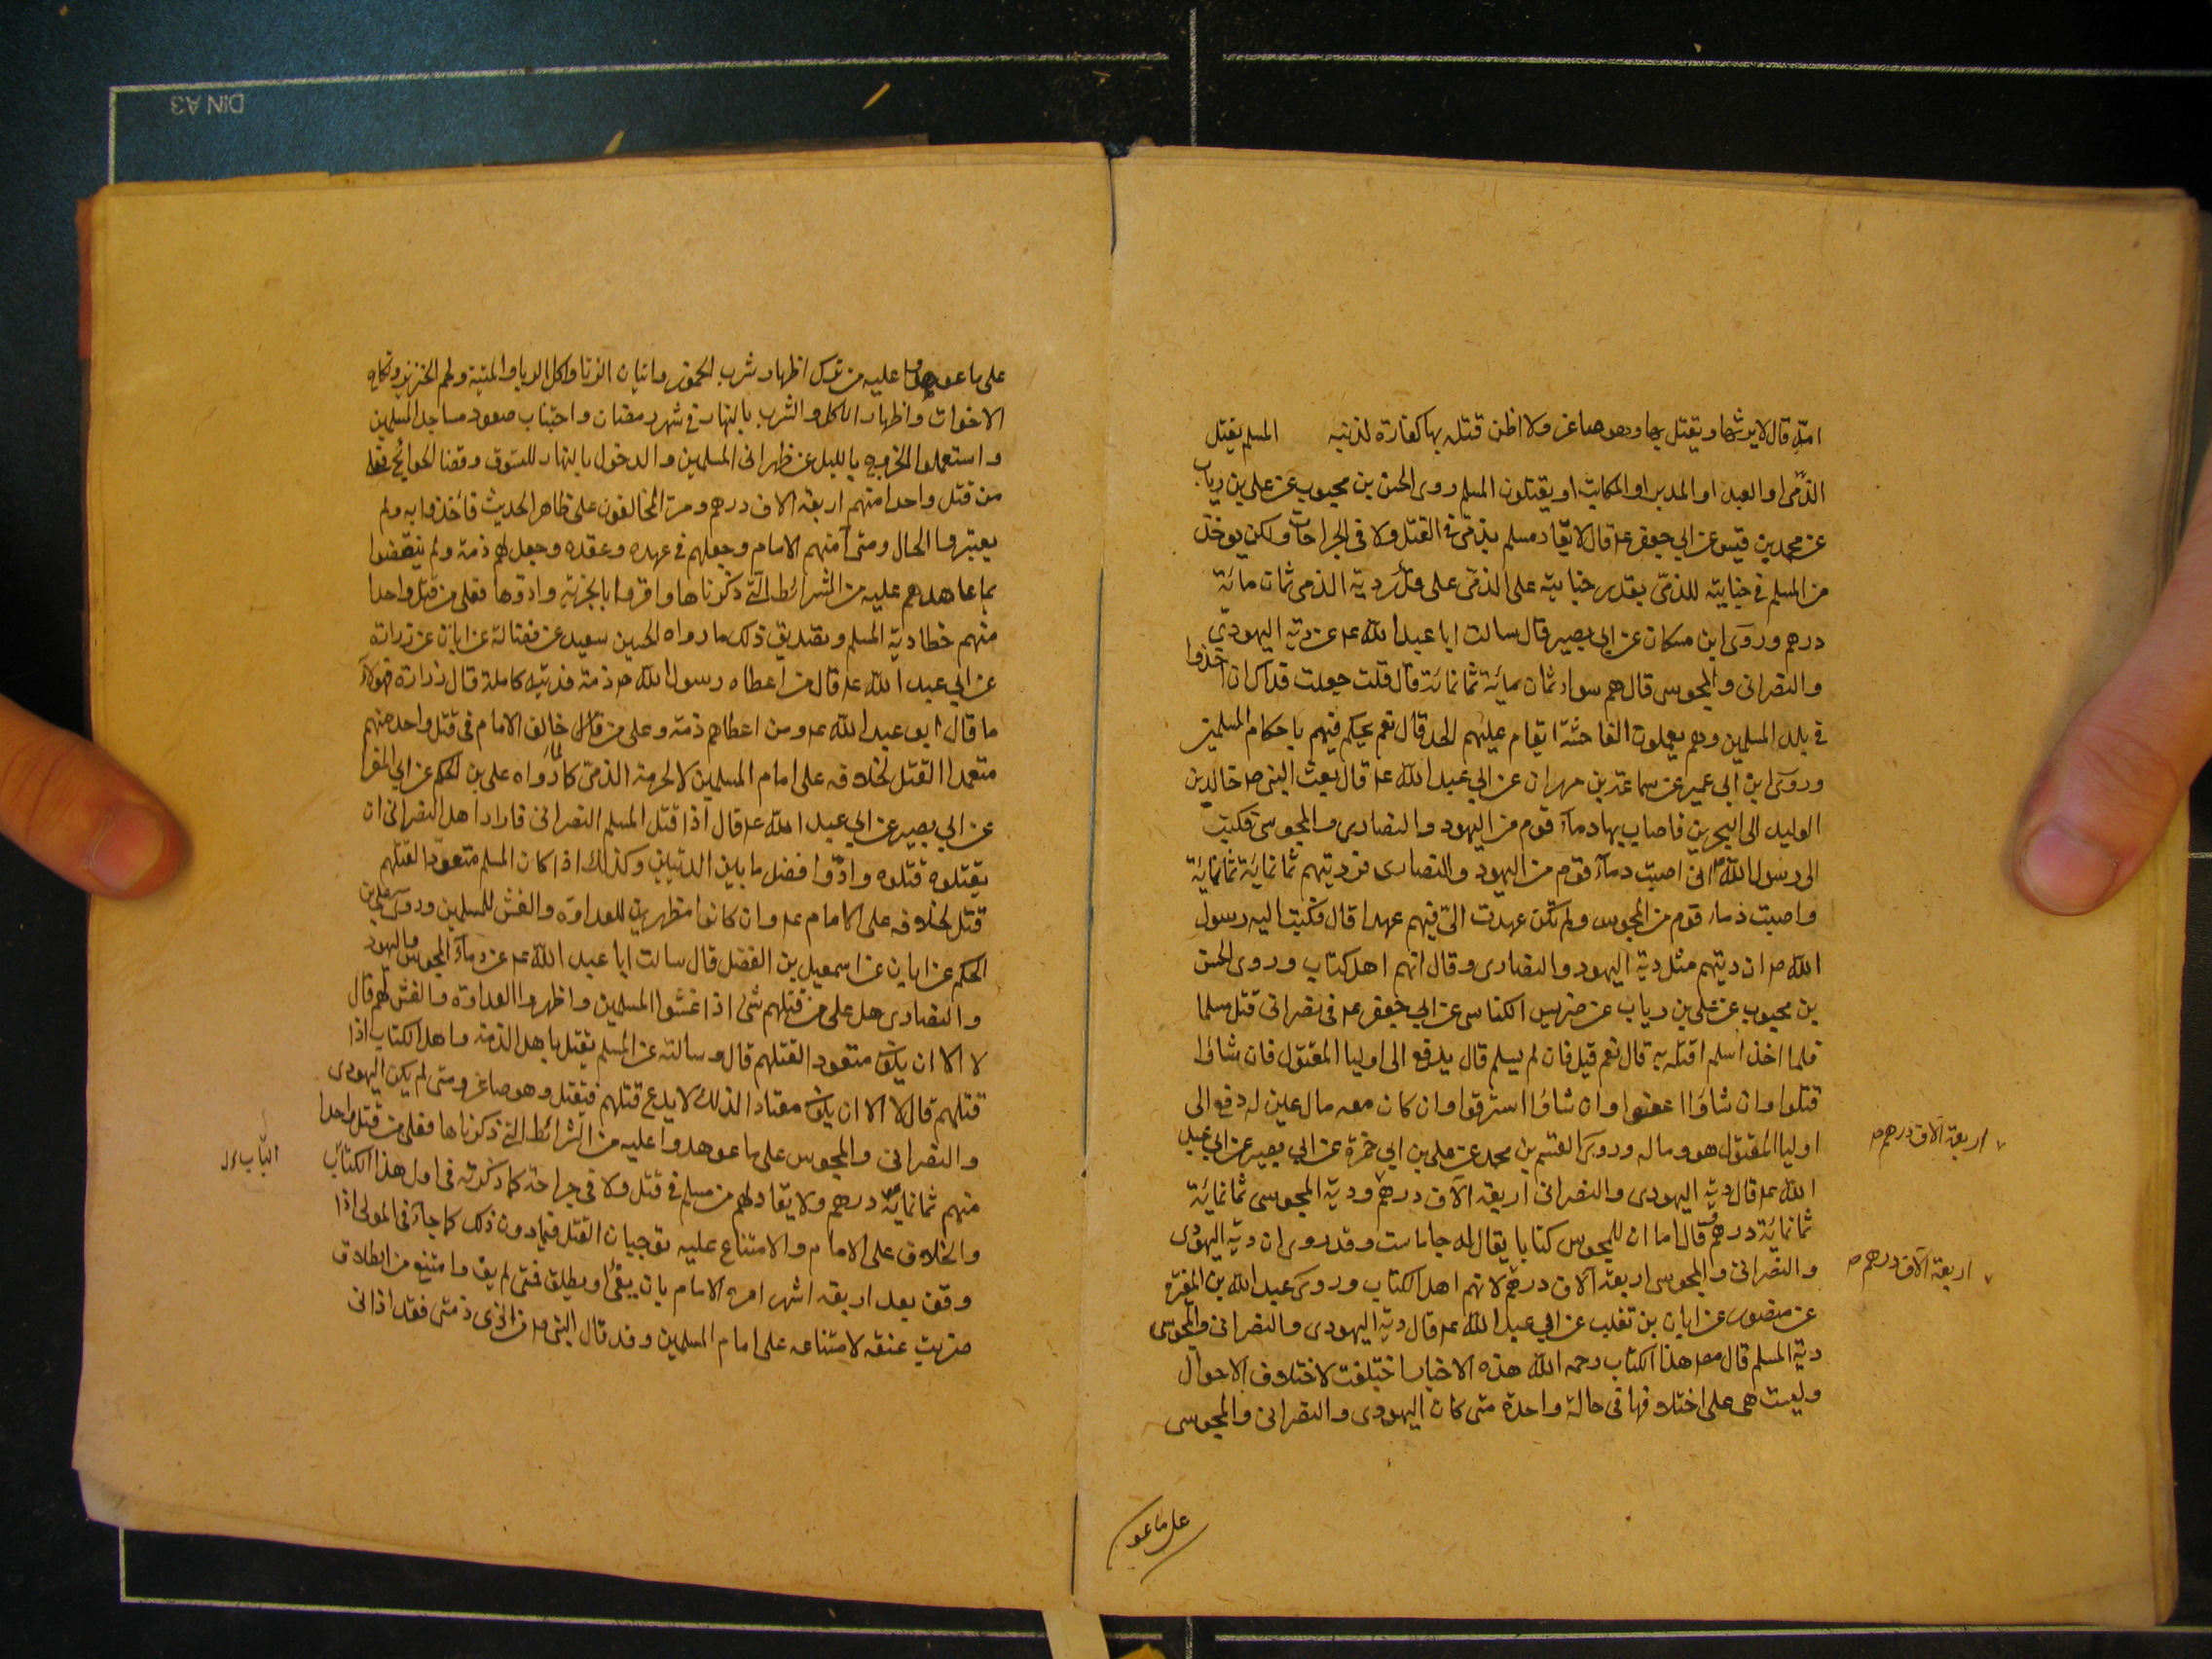 امّه قال لا يرثها و يقتل بها وهو صاغر ولا اظن قتله بها كفارة لذنبه المسلم يقتل
الذّمّى او العبد او المدبر او المكاتب او يقتلون المسلم روى الحسن بن محبوب عن على بن رياب
عن محمد بن قيس عن ابي جعفر عه قال لا يقاد مسلم بذمّى فى القتل ولا فى الجراحات ولكن يوخذ
من المسلم فى جنايته للذمّى بقدر جنايته على الذمّى على قدر دية الذمى ثمان مائة
درهم وروى ابن مسكان عن ابى بصير قال سالت ابا عبد الله عه عن دية اليهودي
والنصرانى والمجوسى قال هم سواء ثمان مائة ثمانمائة قال قلت جعلت فداك ان اخذوا
فى بلد المسلمين وهم يعملون الفاحشة ايقام عليهم الحد قال نعم يحكم فيهم باحكام المسلمين
وروى ابن ابى عمير عن سماعة بن مهران عن ابي عبد الله عه قال بعث النبى صه خالد بن
الوليد الى البحرين فاصاب بها دمآء قوم من اليهود والنصارى والمجوس فكتب
الى رسول الله ص انى اصبت دمآء قوم من اليهود والنصارى فوديتهم ثمانمائة ثمانمائة
واصبت دماء قوم من المجوس ولم تكن عهدت الىّ فيهم عهدا قال فكتب اليه رسول
الله صه ان ديتهم مثل دية اليهود والنصارى وقال انهم اهل كتاب وروى الحسن
بن محبوب عن على بن رياب عن ضريس الكناسى عن ابي جعفر عه فى نصرانى قتل مسلما
فلما اخذ اسلم اقتله به قال نعم قيل فان لم يسلم قال يدفع الى اوليا المقتول فان شاؤا
قتلوا وان شاؤا عفوا وان شاؤا استرقوا وان كان معه مال عين له دفع الى
اوليا المقتول هو وماله وروى القسم بن محمد عن على بن ابي حمزة عن ابي بصير عن ابي عبد
الله عه قال دية اليهودى والنصرانى اربعة آلاف درهم ودية المجوسى ثمانمائة
ثمانمائة درهم وقال اما ان للمجوس كتابا يقال له جاماست وقد روى ان دية اليهودى
والنصرانى والمجوسى اربعة آلاف درهم لانهم اهل الكتاب وروى عبد الله بن المغيرة
عن منصور عن ابان بن تغلب عن ابي عبد الله عه قال دية اليهودى والنصرانى والمجوسى
دية المسلم قال مص هذا الكتاب رحمه الله هذه الاخبار اختلفت لاختلاف الاحوال
وليست هى على اختلافها فى حالة واحدة متى كان اليهودى والنصرانى والمجوسى
اربعة آلاف درهم صه
اربعة آلاف درهم صه
على ما عو
على ما عوهدوا عليه من ترك اظهار شرب الخمور واتيان الزنا واكل الربا والميتة ولحم الخنزير ونكاح
الاخوات واظهار الاكل والشرب بالنهار فى شهر رمضان واجتناب صعود مساجد المسلمين
واستعملوا الخروج بالليل عن ظهرانى المسلمين والدخول بالنهار للتسوق وقضا الحوائج فعلى
من قتل واحدا منهم اربعة الاف درهم ومر المخالفون على ظاهر الحديث فاخذوا به ولم
يعتبروا الحال ومتى آمنهم الامام وجعلهم فى عهده وعقده وجعل لهم ذمة ولم ينقضوا
بما عاهدهم عليه من الشرائط الّتى ذكرناها واقروا بالجزية وادّوها فعلى من قتل واحدا
منهم خطا دية المسلم وتصديق ذلك ما رواه الحسين سعيد عن فضالة عن ابان عن زرارة
عن ابي عبد الله عه قال من اعطاه رسول الله صه ذمة فديته كاملة قال زرارة فهولآء
ما قال ابو عبد الله عه ومن اعطاهم ذمة وعلى من خالف الامام فى قتل واحد منهم
متعمدا القتل لخلافه على امام المسلمين لا لحرمة الذمّى كما رواه على بن الحكم عن ابي المغرا
عن ابي بصير عن ابي عبد الله عه قال اذا قتل المسلم النصرانى فاراد اهل النصرانى ان
يقتلوه قتلوه وادّوا فضل ما بين الديتين وكذلك اذا كان المسلم متعوّدا لقتلهم
قتل لخلافه على الامام عه وان كانوا مظهرين للعداوة والغش للمسلمين وروى على بن
الحكم عن ابان عن اسمعيل بن الفضل قال سالت ابا عبد الله عه عن دمآء المجوس واليهود
والنصارى هل على من قتلهم شئ اذا غشّوا المسلمين واظهروا العداوة والغش لهم قال
لا الا ان يكون متعودا لقتلهم قال وسالته عن المسلم يقتل باهل الذمة واهل الكتاب اذا
قتلهم قال لا الا ان يكون معتادا لذلك لا يدع قتلهم فيقتل وهو صاغر ومتى لم يكن اليهودى
والنصرانى والمجوس على ما عوهدوا عليه من الشرائط الّتى ذكرناها فعلى من قتل واحدا
منهم ثمانمائة درهم ولا يقاد لهم من مسلم فى قتل ولا فى جراحة كما ذكرته فى اول هذا الكتاب
والخلاف على الامام والامتناع عليه يوجبان القتل فيما دون ذلك كما جاء فى المولى اذا
وقف بعد اربعة اشهر امره الامام بان يفئ او يطلق فمتى لم يفئ وامتنع من الطلاق
ضربت عنقه لامتناعه على امام المسلمين وقد قال النبى صه من آذى ذمتى فقد اذانى
الباب